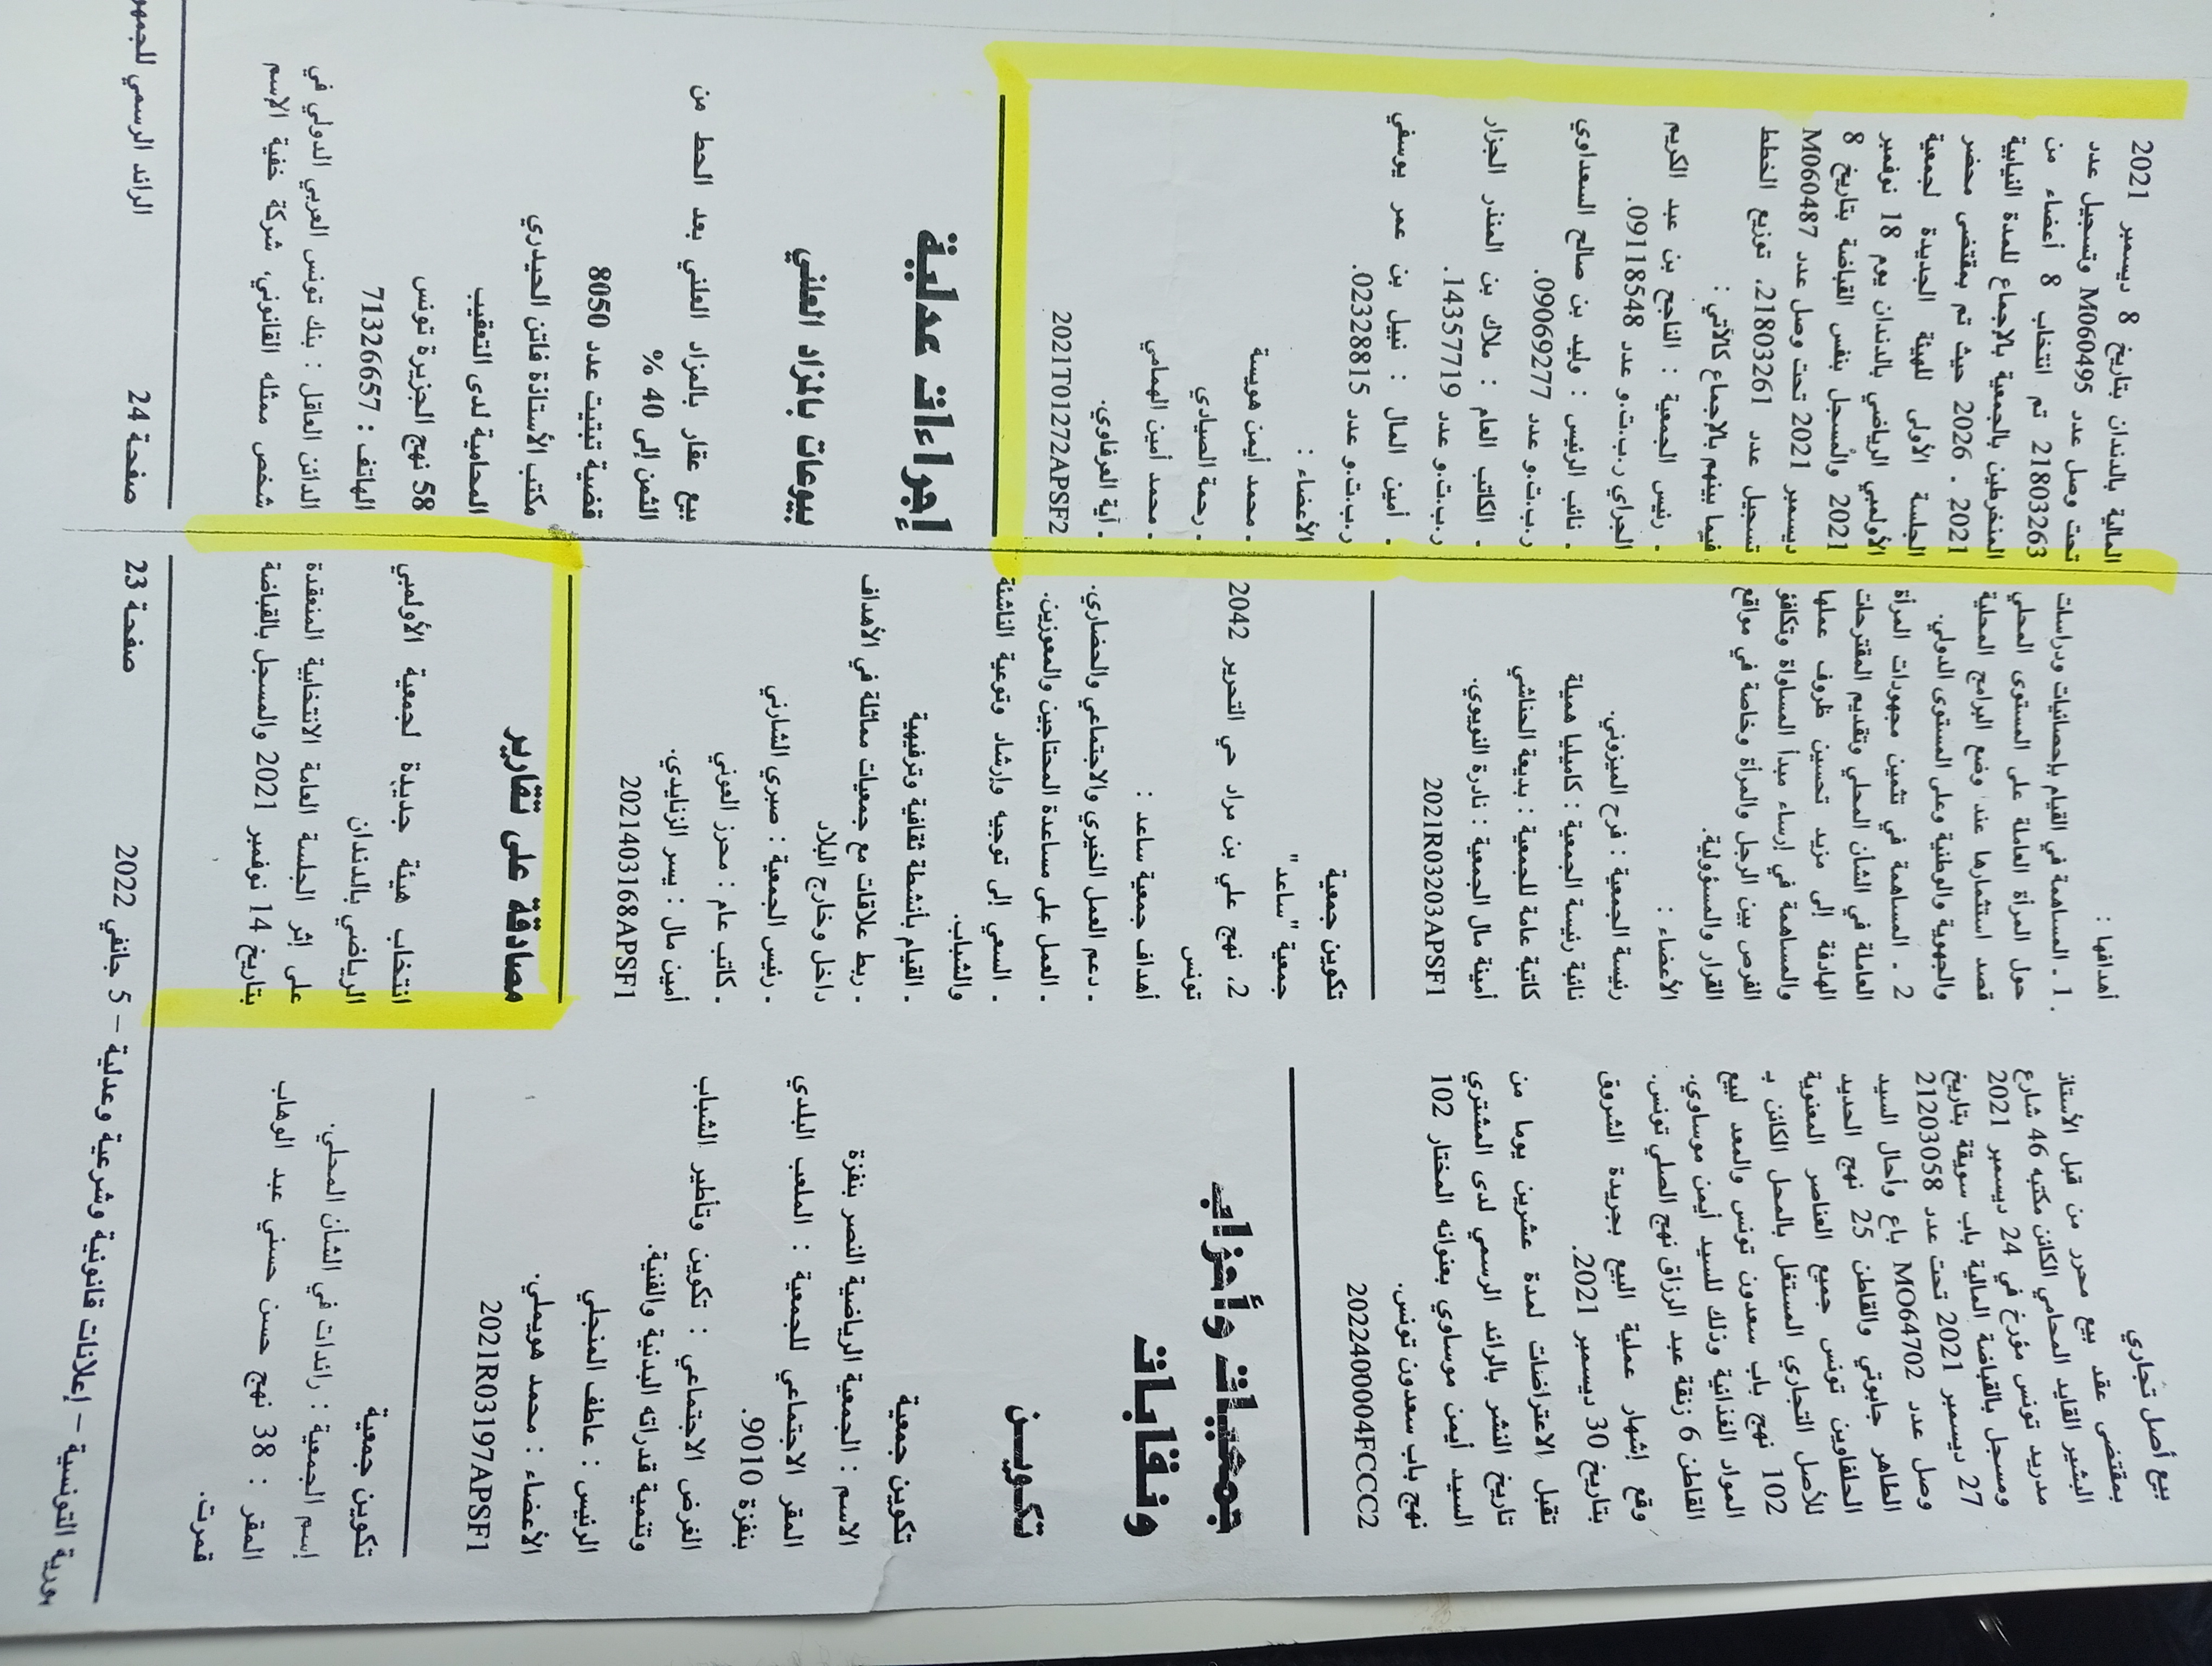 بيع أصل تجاري
بمقتضى عقد بيع محرر من قبل الأستاذ
البشير القايد المحامي الكائن مكتبه 46 شارع
مدريد تونس مؤرخ في 24 ديسمبر 2021
ومسجل بالقباضة المالية باب سويقة بتاريخ
27 ديسمبر 2021 تحت عدد 21203058
وصل عدد MO64702 باع وأحال السيد
الطاهر جابوتي والقاطن 25 نهج الحديد
الحلفاوين تونس جميع العناصر المعنوية
للأصل التجاري المستقل بالمحل الكائن بـ
102 نهج باب سعدون تونس والمعد لبيع
المواد الغذائية وذلك للسيد أيمن موساوي.
القاطن 6 زنقة عبد الرزاق نهج الصلي تونس.
وقع إشهار عملية البيع بجريدة الشروق
بتاريخ 30 ديسمبر 2021.
تقبل الاعتراضات لمدة عشرين يوما من
تاريخ النشر بالرائد الرسمي لدى المشتري
السيد أيمن موساوي بعنوانه المختار 102
نهج باب سعدون تونس.
2022400004FCCC2
جمعيات وأحزاب
ونقابات
تكويـــن
تكوين جمعية
الاسم : الجمعية الرياضية النصر بنفزة
المقر الاجتماعي للجمعية : الملعب البلدي
بنفزة 9010.
الغرض الاجتماعي : تكوين وتأطير الشباب
وتنمية قدراته البدنية والفنية.
الرئيس : عاطف المنجلي
الأعضاء : محمد هويملي.
2021R03197APSF1
تكوين جمعية
إسم الجمعية : رائدات في الشأن المحلي.
المقر : 38 نهج حسن حسني عبد الوهاب
قمرت.
أهدافها :
1 ـ المساهمة في القيام بإحصائيات ودراسات
حول المرأة العاملة على المستوى المحلي
قصد استثمارها عند وضع البرامج المحلية
والجهوية والوطنية وعلى المستوى الدولي.
2 ـ المساهمة في تثمين مجهودات المرأة
العاملة في الشأن المحلي وتقديم المقترحات
الهادفة إلى مزيد تحسين ظروف عملها
والمساهمة في إرساء مبدأ المساواة وتكافؤ
الفرص بين الرجل والمرأة وخاصة في مواقع
القرار والمسؤولية.
الأعضاء :
رئيسة الجمعية : فرح الميزوني.
نائبة رئيسة الجمعية : كاميليا هميلة
كاتبة عامة للجمعية : بديعة الحناشي
أمينة مال الجمعية : نادرة النويوي.
2021R03203APSF1
تكوين جمعية
جمعية "ساعد"
2، نهج علي بن مراد حي التحرير 2042
تونس
أهداف جمعية ساعد :
ـ دعم العمل الخيري والاجتماعي والحضاري.
ـ العمل على مساعدة المحتاجين والمعوزين.
ـ السعي إلى توجيه وإرشاد وتوعية الناشئة
والشباب.
ـ القيام بأنشطة ثقافية وترفيهية
ـ ربط علاقات مع جمعيات مماثلة في الأهداف
داخل وخارج البلاد
ـ رئيس الجمعية : صبري الشارني
ـ كاتب عام : محرز العوني
أمين مال : يسر الزنايدي.
2021403168APSF1
مصادقة على تقارير
انتخاب هيئة جديدة لجمعية الأولمبي
الرياضي بالدندان
على إثر الجلسة العامة الانتخابية المنعقدة
بتاريخ 14 نوفمبر 2021 والمسجل بالقباضة
المالية بالدندان بتاريخ 8 ديسمبر 2021
تحت وصل عدد M060495 وتسجيل عدد
21803263 تم انتخاب 8 أعضاء من
المنخرطين بالجمعية بالإجماع للمدة النيابية
2021 ـ 2026 حيث تم بمقتضى محضر
الجلسة الأولى للهيئة الجديدة لجمعية
الأولمبي الرياضي بالدندان يوم 18 نوفمبر
2021 والمسجل بنفس القباضة بتاريخ 8
ديسمبر 2021 تحت وصل عدد M060487
تسجيل عدد 21803261، توزيع الخطط
فيما بينهم بالإجماع كالآتي :
ـ رئيس الجمعية : الناجح بن عبد الكريم
الجراي ر.ب.ت.و عدد 09118548.
ـ نائب الرئيس : وليد بن صالح السعداوي
ر.ب.ت.و عدد 09069277.
ـ الكاتب العام : ملاك بن المنذر الجزار
ر.ب.ت.و عدد 14357719.
ـ أمين المال : نبيل بن عمر يوسفي
ر.ب.ت.و عدد 02328815.
الأعضاء :
ـ محمد أيمن هويسة
ـ رحمة الصيادي
ـ محمد أمين الهمامي
ـ آية العرفاوي.
2021T01272APSF2
إجراءات عدلية
بيوعات بالمزاد العلني
بيع عقار بالمزاد العلني بعد الحط من
الثمن إلى 40 %
قضية تبتيت عدد 8050
مكتب الأستاذة فاتن الحيدري
المحامية لدى التعقيب
58 نهج الجزيرة تونس
الهاتف : 71326657
الدائن العاقل : بنك تونس العربي الدولي في
شخص ممثله القانوني، شركة خفية الإسم
ورية التونسية – إعلانات قانونية وشرعية وعدلية – 5 جانفي 2022
صفحة 23
صفحة 24
الرائد الرسمي للجمهو